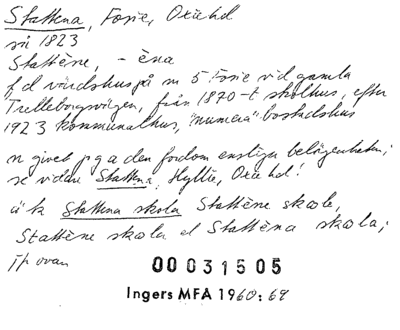 Stattena, Fosie, Oxie hd
sri 1823
Stattène, - èna
f d värdshus på nr 5 Fosie vid gamla
Trelleborgsvägen, från 1870-t skolhus, efter
1923 kommunalhus, "numera" bostadshus
n givet pga den fordom ensliga belägenheten;
se vidare Stattena, Hyllie, Oxie hd!
äv k Stattena skola Stattène skole,
Stattène skola el Stattèna skola;
jfr ovan
00031505
Ingers MFA 1960:69